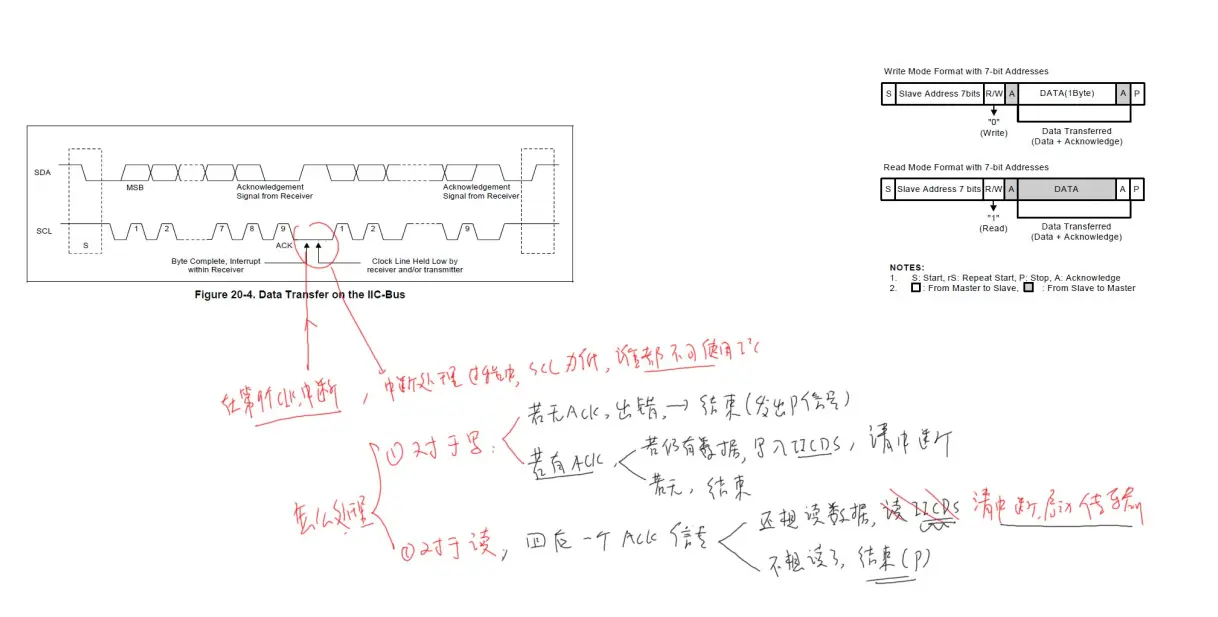 Write Mode Format with 7-bit Addresses
S Slave Address 7bits R/W A DATA(1Byte) A P
"0"
(Write)
Data Transferred
(Data + Acknowledge)
Read Mode Format with 7-bit Addresses
S Slave Address 7 bits R/W A DATA A P
"1"
(Read)
Data Transferred
(Data + Acknowledge)
NOTES:
1. S: Start, rS: Repeat Start, P: Stop, A: Acknowledge
2. : From Master to Slave, : From Slave to Master
SDA
MSB
Acknowledgement
Signal from Receiver
Acknowledgement
Signal from Receiver
SCL
S 1 2 7 8 9 1 2 9
ACK
Byte Complete, Interrupt
within Receiver
Clock Line Held Low by
receiver and/or transmitter
Figure 20-4. Data Transfer on the IIC-Bus
在第9个CLK,中断, 中断处理过程中,SCL为低,谁都不可使用I²C
怎么处理
①对于写:
若无ACK,出错,→结束(发出P信号)
若有ACK,
若仍有数据,写入IICDS,清中断
若无,结束
②对于读, 回应一个ACK信号
还想读数据,读IICDS 清中断,启动传输
不想读了,结束(P)